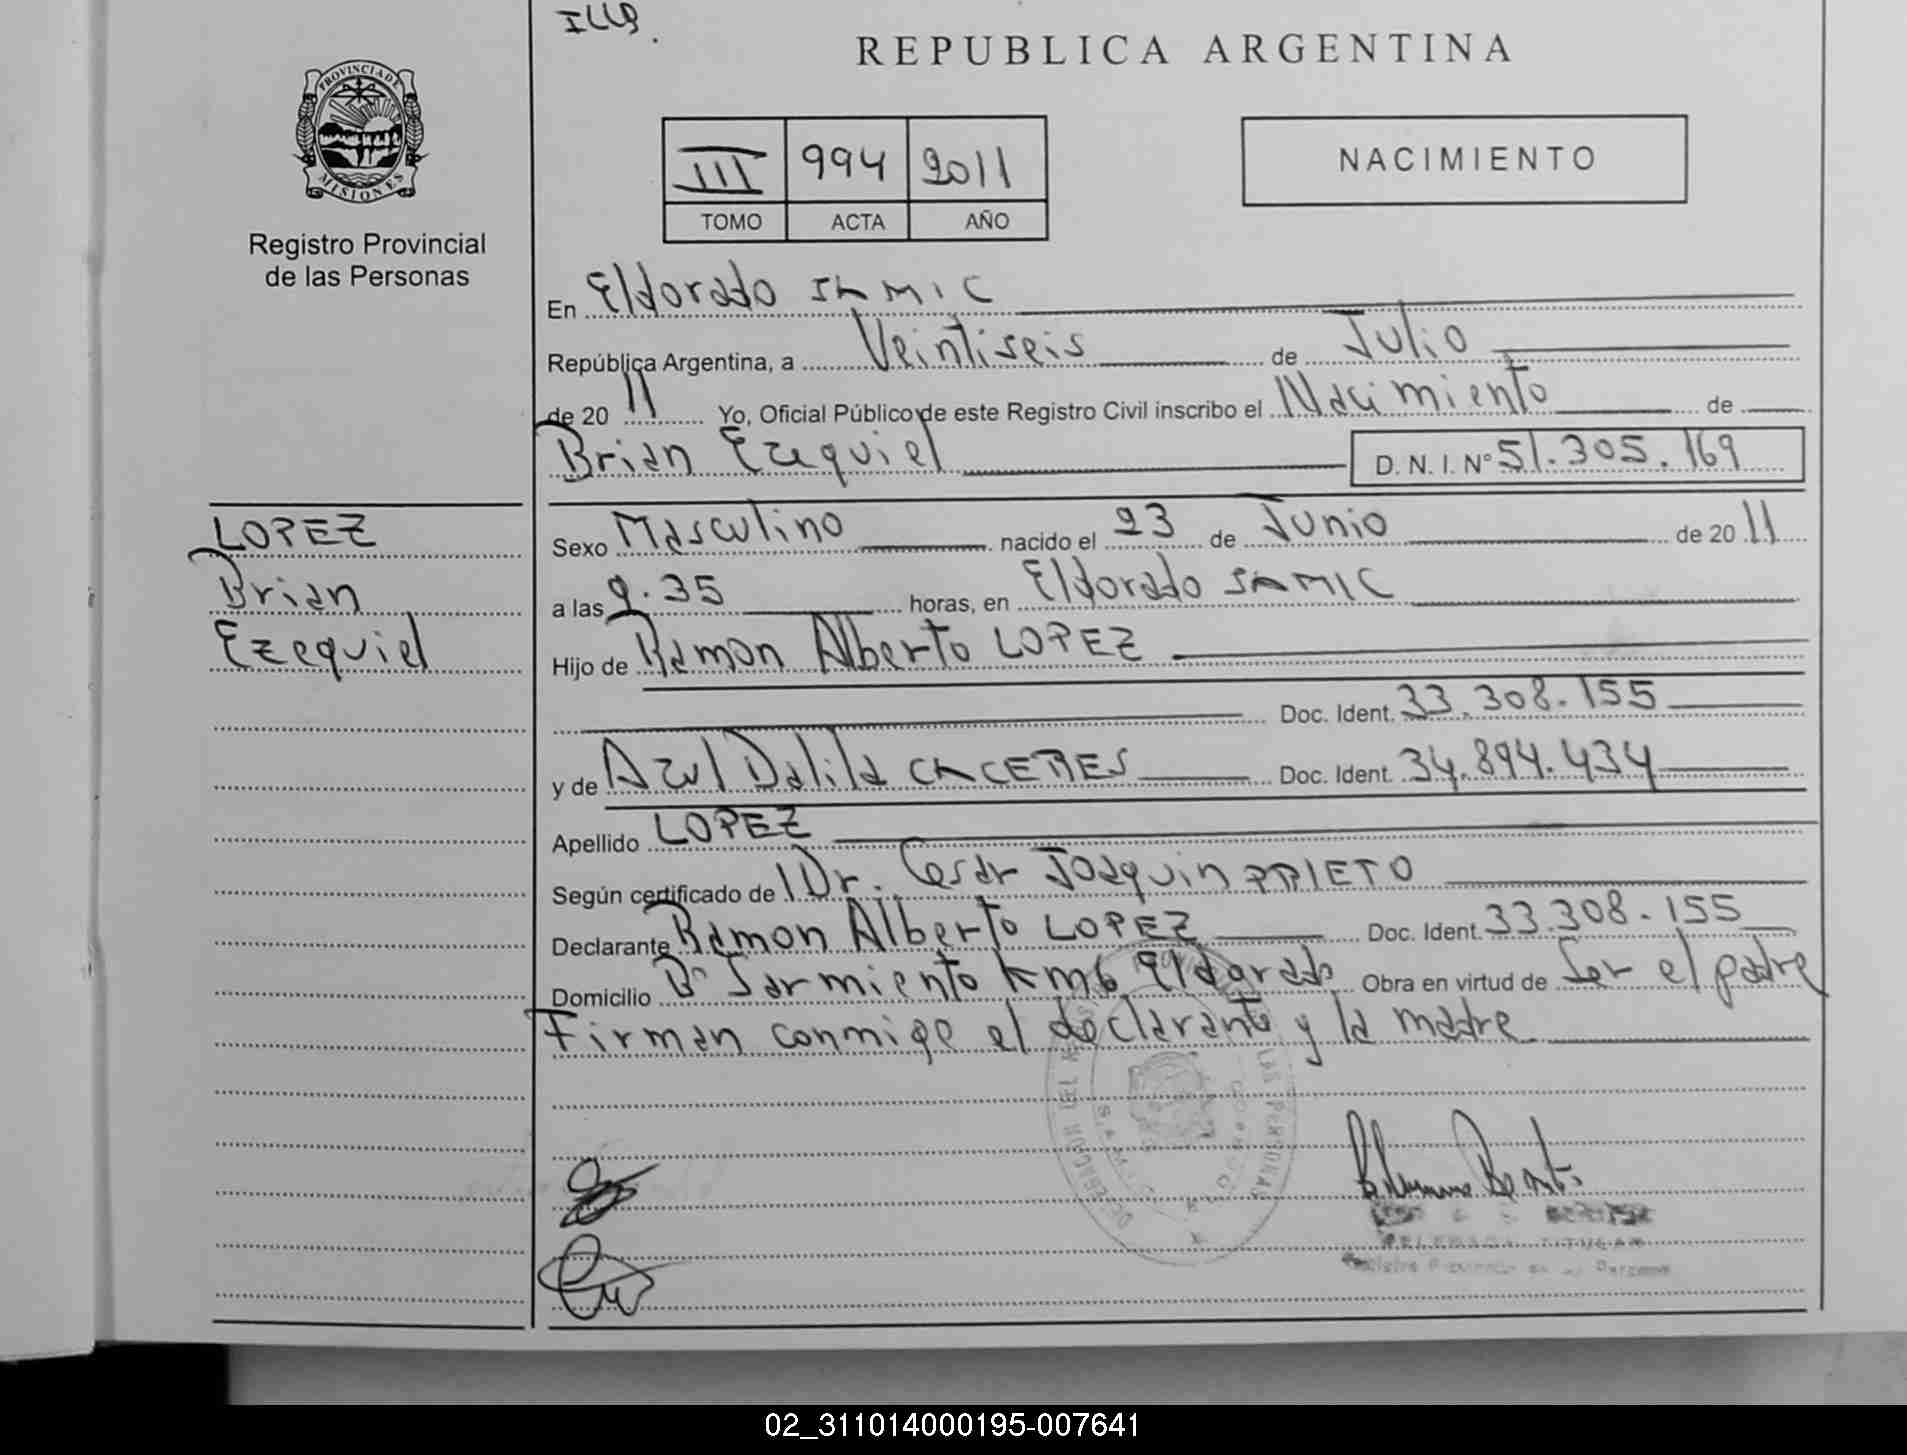 REPUBLICA ARGENTINA
PROVINCIA DE
MISIONES
Registro Provincial
de las Personas
III 994 2011
TOMO ACTA AÑO
NACIMIENTO
En Eldorado SAMIC
República Argentina, a Veintiseis de Julio
de 20 11 Yo, Oficial Público de este Registro Civil inscribo el Nacimiento de
Brian Ezequiel D. N. I. Nº 51.305.169
LOPEZ
Brian
Ezequiel
Sexo Masculino nacido el 23 de Junio de 20 11
a las 9.35 horas, en Eldorado SAMIC
Hijo de Ramon Alberto LOPEZ
Doc. Ident. 33.308.155
y de Azul Dalila CACERES Doc. Ident. 34.894.434
Apellido LOPEZ
Según certificado de Dr. Cesar Joaquin PRIETO
Declarante Ramon Alberto LOPEZ Doc. Ident. 33.308.155
Domicilio Bº Sarmiento Km6 Eldorado Obra en virtud de Ser el padre
Firman conmigo el declarante y la madre
LAS PERSONAS
02_311014000195-007641